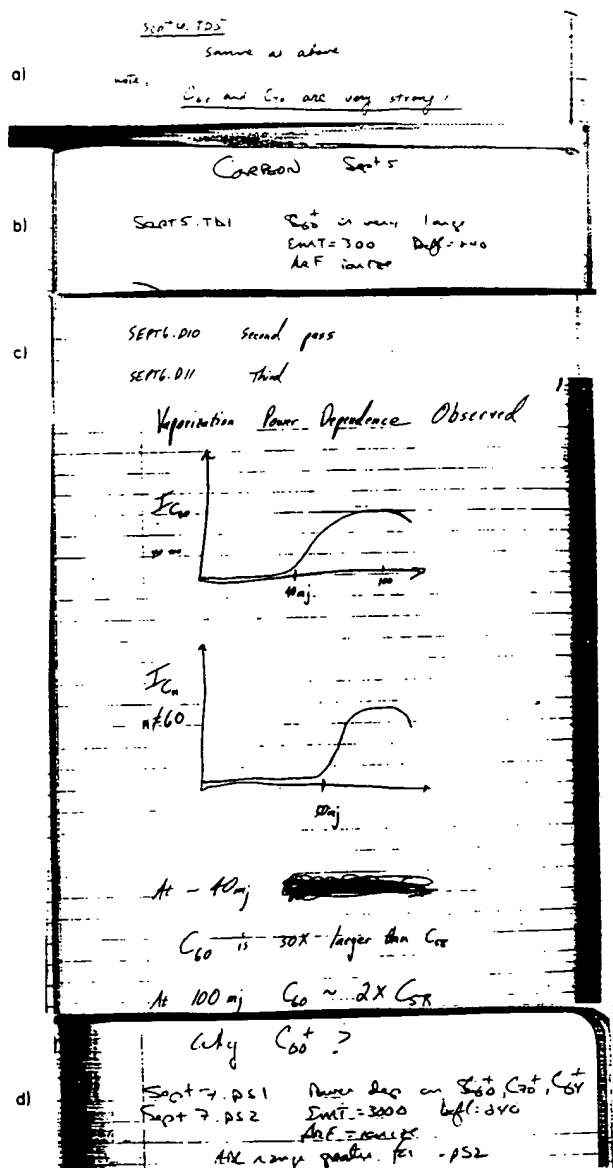 a)
Sept 4. TD5
Same as above
note:
C60 and C70 are very strong!
b)
CARBON Sept 5
SEPT5.TD1 C60+ is very large
EMT=300 Defl=240
ArF ionize
c)
SEPT6.D10 Second pass
SEPT6.D11 Third
Vaporization Power Dependence Observed
I C60
40mj 100
I Cn
n≠60
50mj
At ~ 40mj
C60 is 30X larger than C58
At 100 mj C60 ~ 2X C58
Why C60+ ?
d)
Sept 7.PS1 Power dep on C60+, C70+, C64+
Sept 7.PS2 EMT=3000 Defl=240
ArF = ionize
range PS1 - PS2